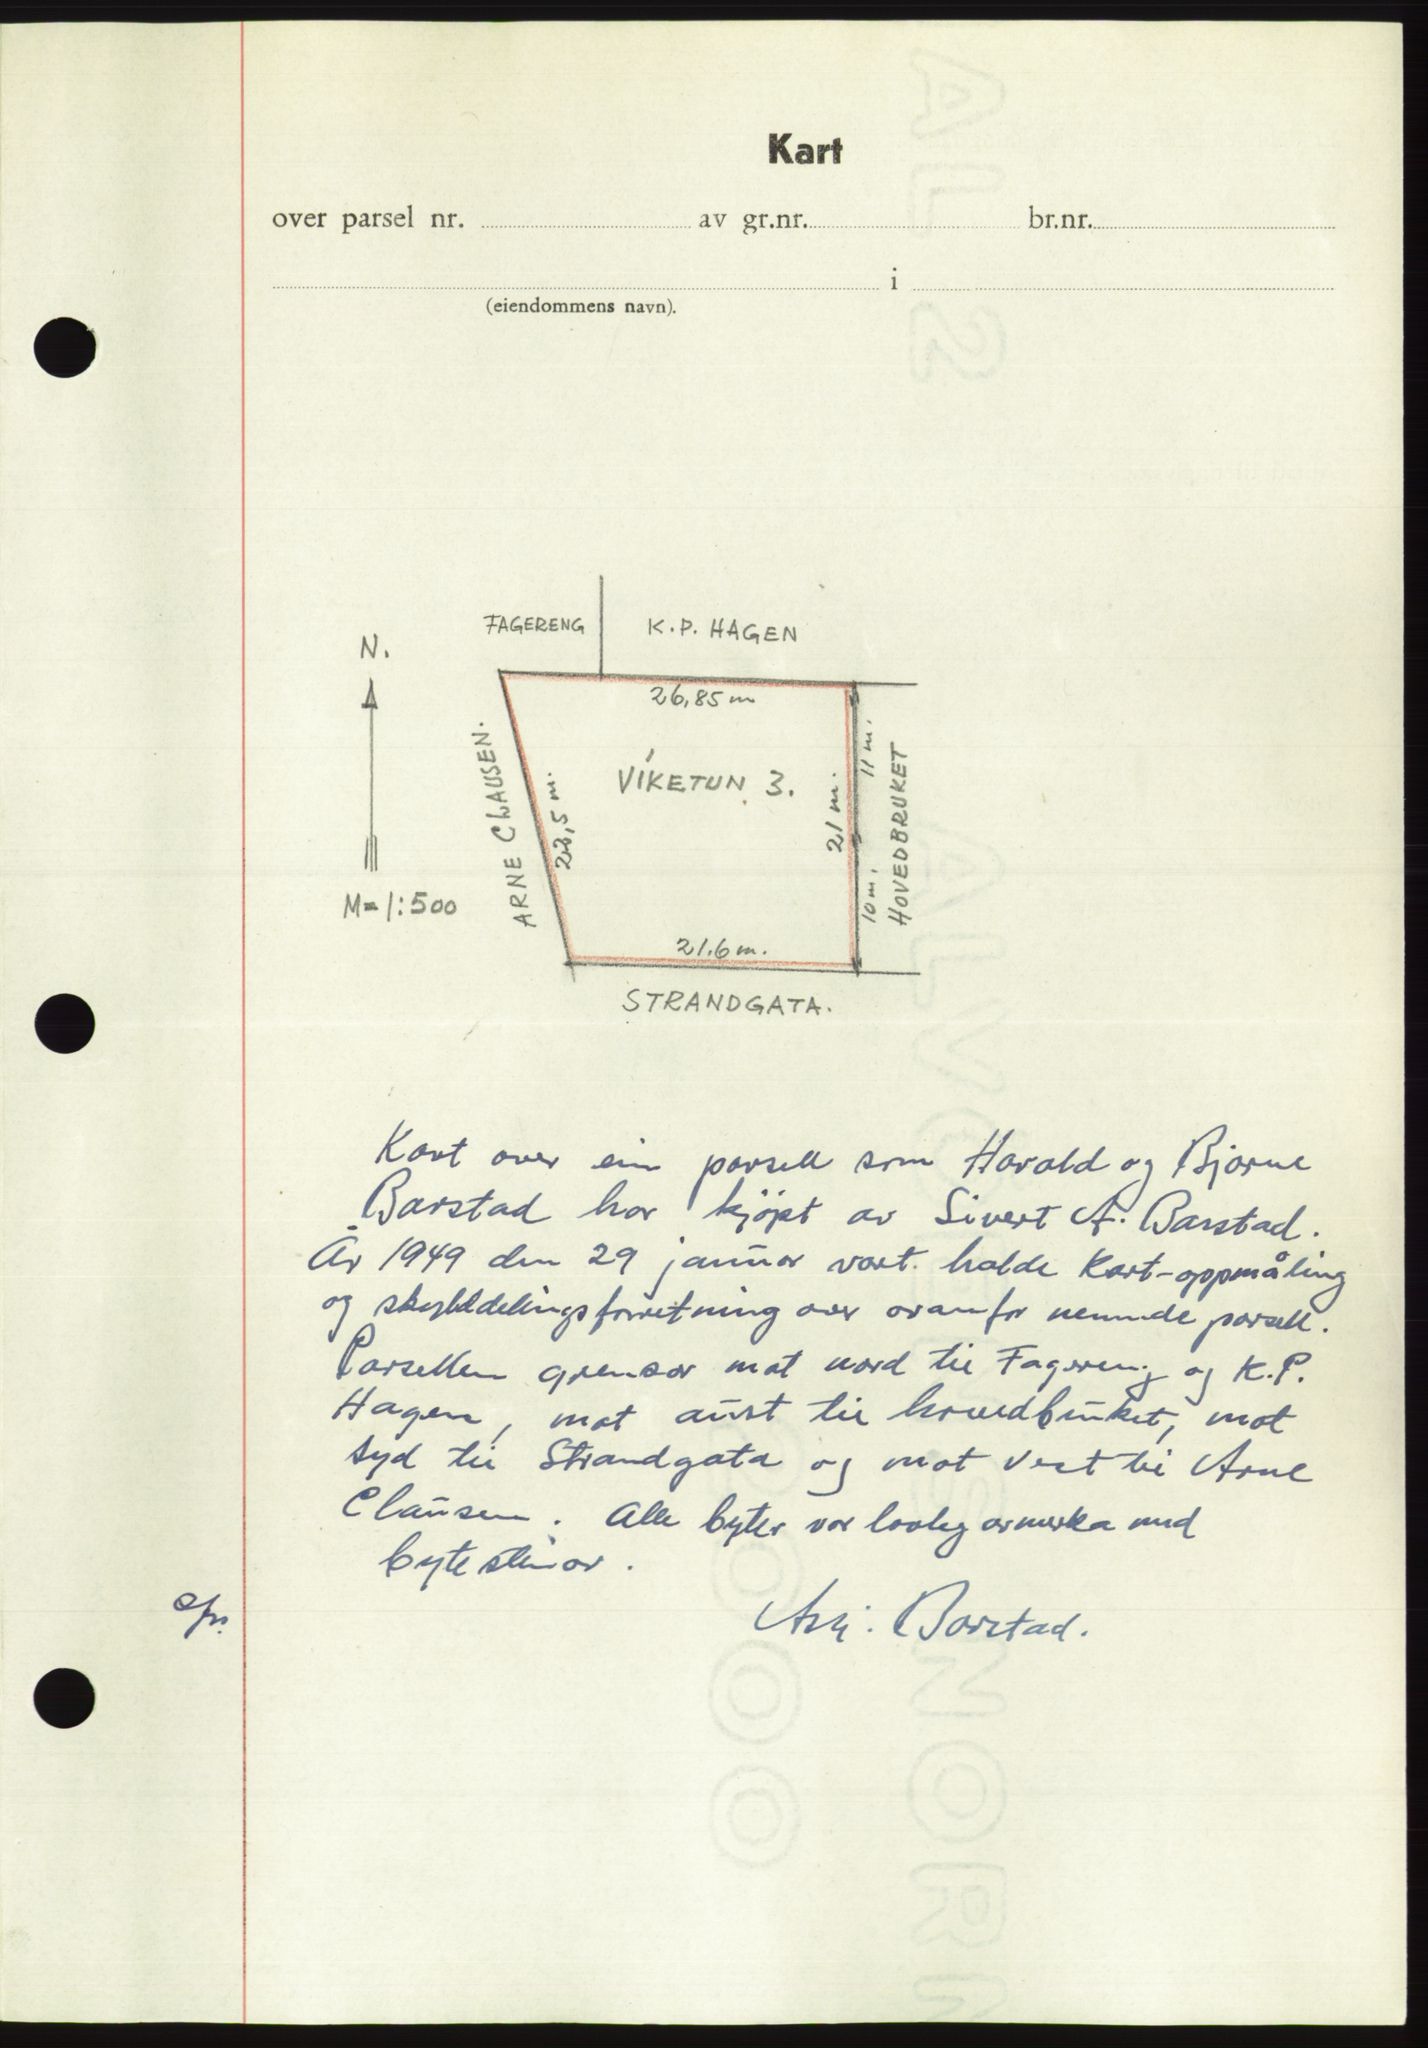 Kart
over parsel nr. av gr.nr. br.nr.
i
(eiendommens navn).
FAGERENG K.P. HAGEN
N.
26,85 m
VIKETUN 3.
ARNE CLAUSEN.
22,5 m.
21 m.
11 m.
10 m.
HOVEDBRUKET
M= 1:500
21.6 m.
STRANDGATA.
Kart over ein parsell som Harald og Bjarne
Barstad har kjöpt av Sivert A. Barstad.
År 1949 den 29 januar vart halde Kart-oppmåling
og skylddelingsforretning over ovanfor nemnde parsell.
Parsellen grensar mot nord til Fagereng og K.P.
Hagen, mot aust til hovedbruket, mot
syd til Strandgata og mot vest til Arne
Clausen. Alle byter var lovleg avmerka med
bytesteinar.
Barstad.